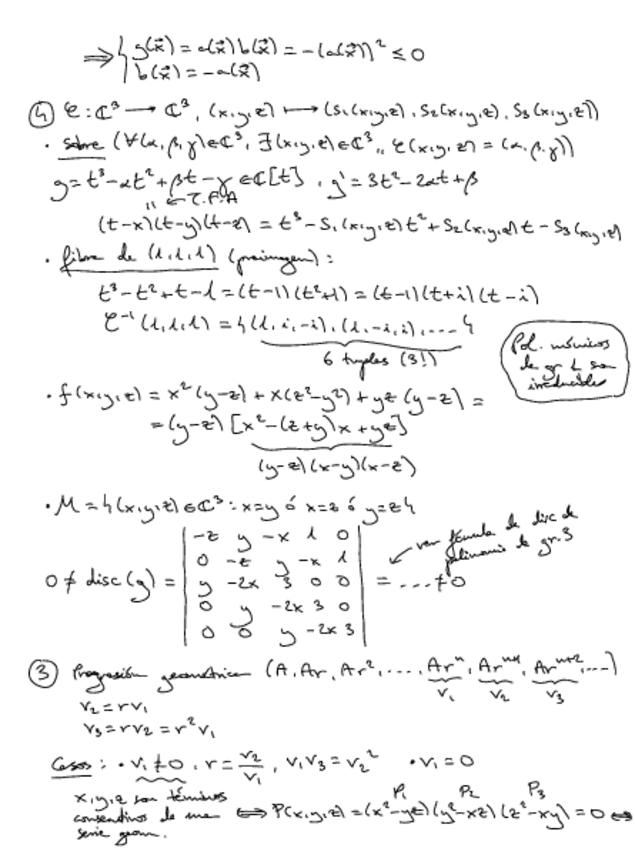 ⟹ { g(x⃗) = a(x⃗) b(x⃗) = -(a(x⃗))² ≤ 0
b(x⃗) = -a(x⃗)
④ φ: ℂ³ ⟶ ℂ³, (x,y,z) ⟼ (S₁(x,y,z), S₂(x,y,z), S₃(x,y,z))
· sobre (∀(α,β,γ)∈ℂ³, ∃(x,y,z)∈ℂ³ ,, φ(x,y,z) = (α,β,γ))
g = t³-αt²+βt-γ ∈ ℂ[t] , g' = 3t²-2αt+β
" ← T.F.A
(t-x)(t-y)(t-z) = t³ - S₁(x,y,z)t² + S₂(x,y,z)t - S₃(x,y,z)
· fibra de (1,1,1) (preimagen):
t³-t²+t-1 = (t-1)(t²+1) = (t-1)(t+i)(t-i)
φ⁻¹(1,1,1) = {(1,i,-i), (1,-i,i), ....}
6 tuples (3!)
Pol. mónicos
de gr 1 son
irreducibles
· f(x,y,z) = x²(y-z) + x(z²-y²) + yz(y-z) =
= (y-z) [x²-(z+y)x+yz]
(y-z)(x-y)(x-z)
· M = {(x,y,z)∈ℂ³ : x=y ó x=z ó y=z}
0 ≠ disc(g) = | -z y -x 1 0 |
| 0 -z y -x 1 |
| y -2x 3 0 0 | = ....≠0
| 0 y -2x 3 0 |
| 0 0 y -2x 3 |
ver fórmula de disc de
polinomio de gr. 3
③ Progresión geométrica (A, Ar, Ar², ...., Arⁿ, Arⁿ⁺¹, Arⁿ⁺², ....)
V₁ V₂ V₃
V₂ = rV₁
V₃ = rV₂ = r²V₁
Casos: · V₁≠0 , r = V₂/V₁ , V₁V₃ = V₂² · V₁=0
P₁ P₂ P₃
x,y,z son términos
consecutivos de una ⟺ P(x,y,z) = (x²-yz)(y²-xz)(z²-xy) = 0 ⟺
serie geom.